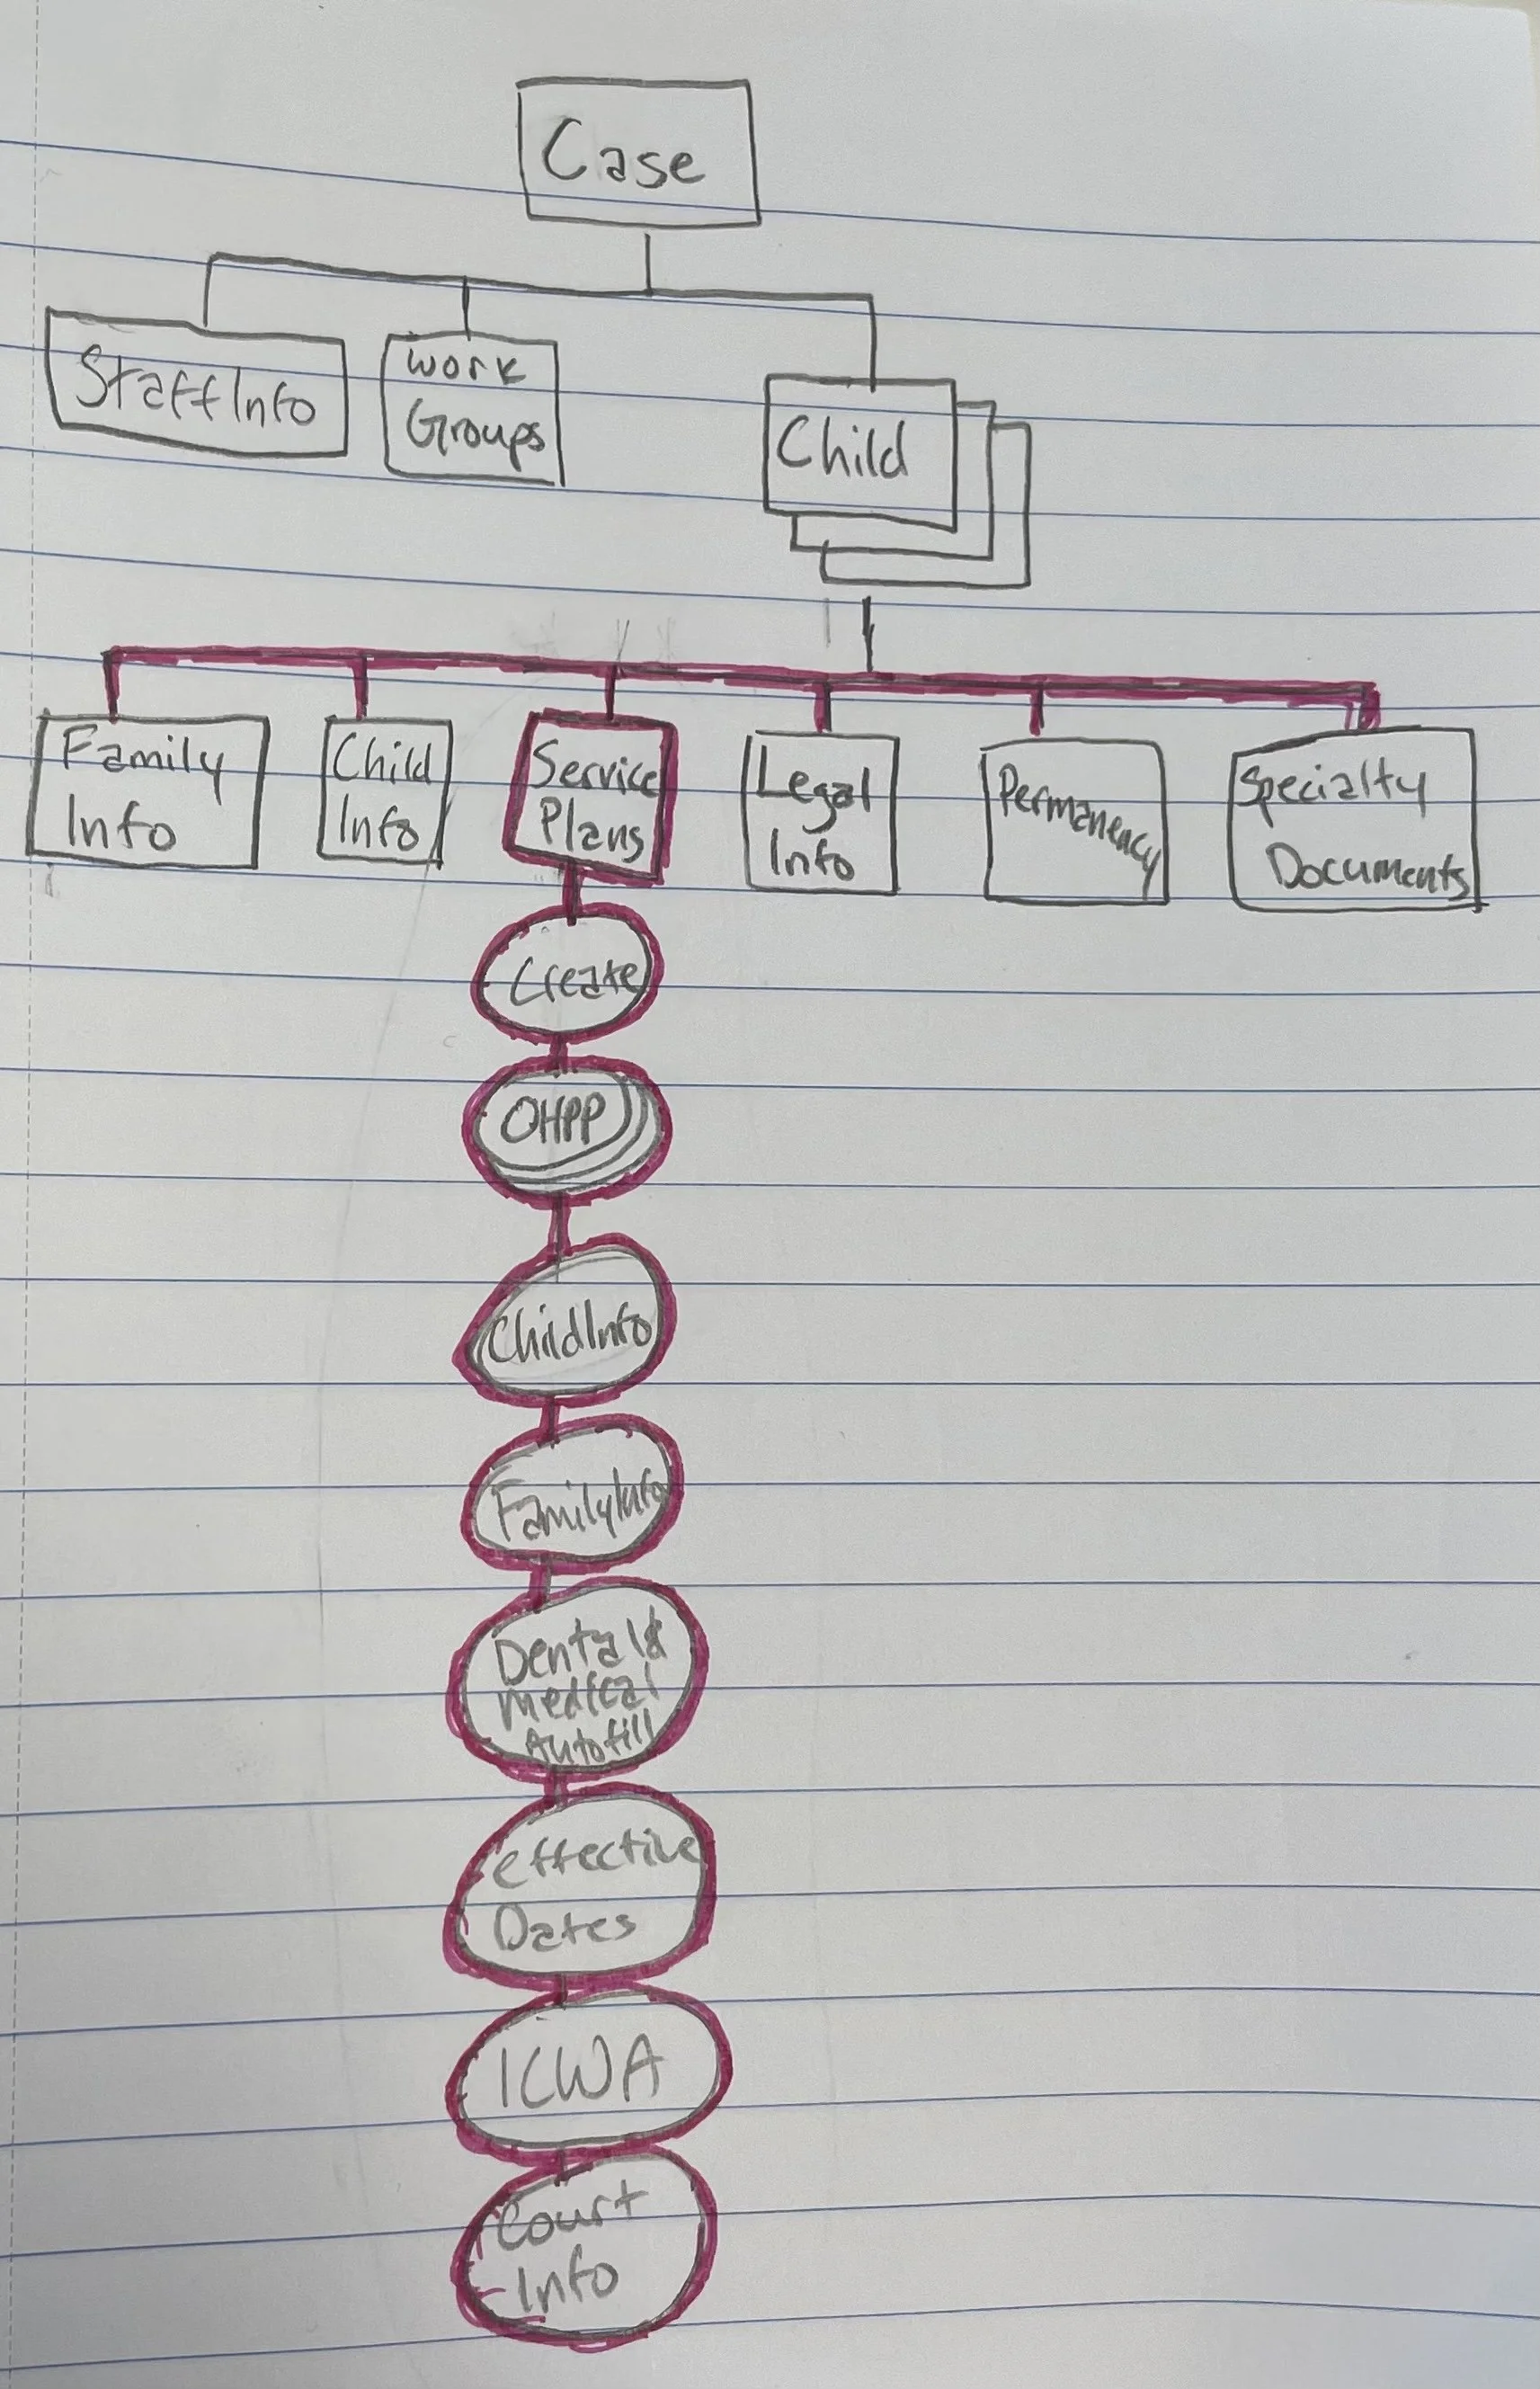 Case
StaffInfo
Work
Groups
Child
Family
Info
Child
Info
Service
Plans
Legal
Info
Permanency
Specialty
Documents
Create
OHPP
ChildInfo
FamilyInfo
Dental &
Medical
Autofill
effective
Dates
ICWA
Court
Info